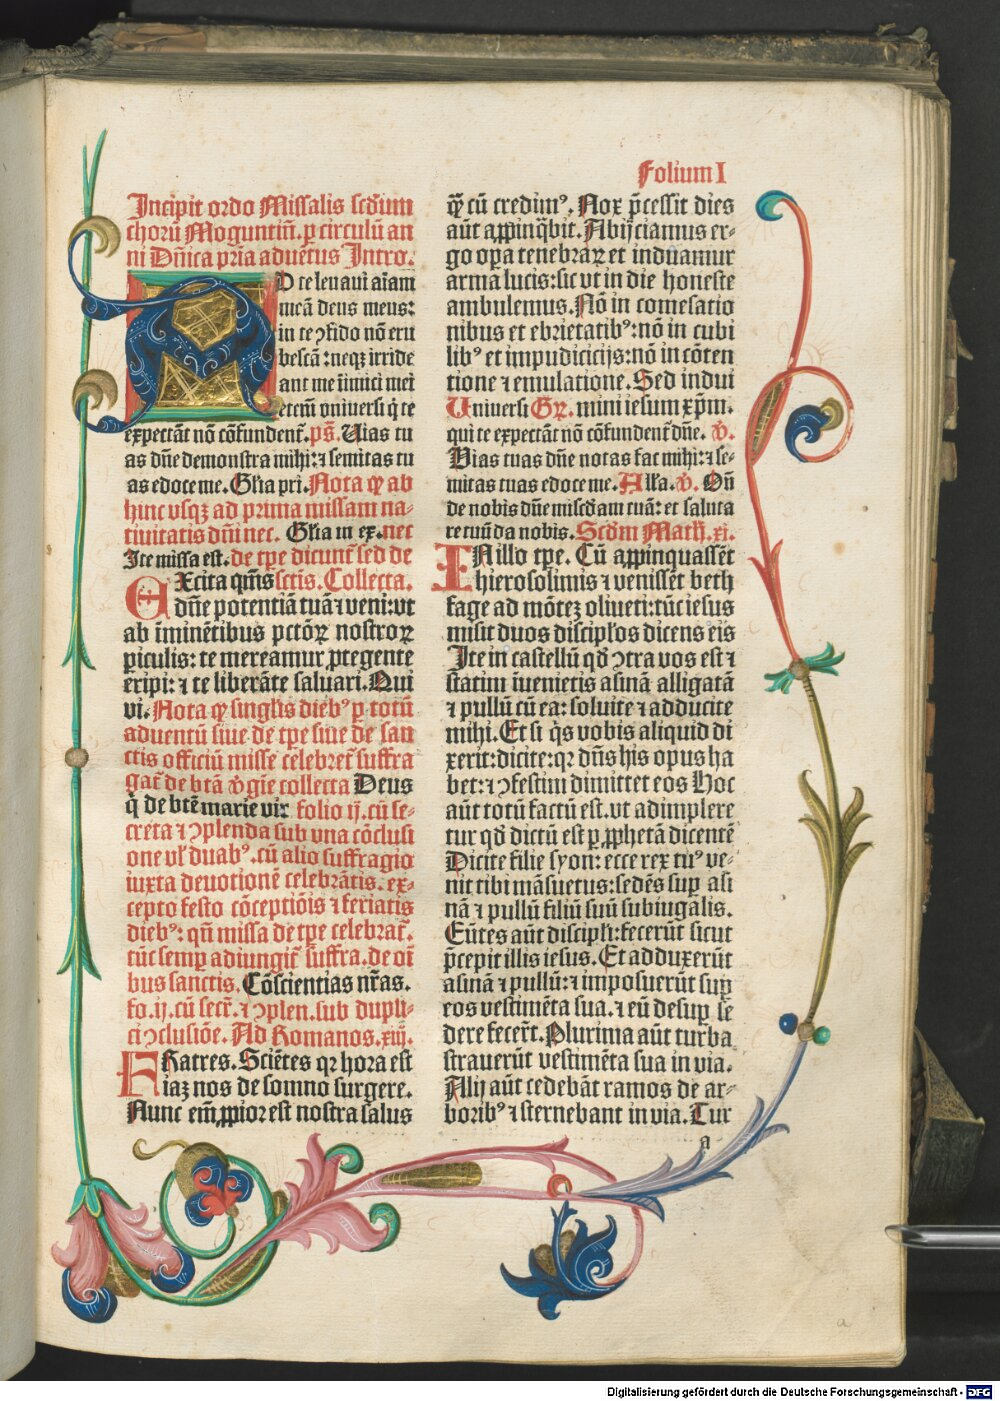 Folium I
Incipit ordo Missalis scd̄um
chorū Moguntin̄. ꝑ circulū an
ni Dn̄ica pr̄ia aduētus Intro.
AD te leuaui aīam
meā deus meus:
in te ꝯfido nō eru
bescā: neqꝫ irride
ant me īimici mei
etem̄ vniuersi q̇ te
expectāt nō cōfundent᷑. ps̄. Uias tu
as dn̄e demonstra mihi: ⁊ semitas tu
as edoce me. Gl̄ia pr̄i. Nota ꝙ ab
hinc vsqꝫ ad prima missam na-
tiuitatis dn̄i nec. Gl̄ia in ex. nec
Ite missa est. de tp̄e dicunt᷑ sed de
EXcita qm̄s sctis. Collecta.
dn̄e potentiā tuā ⁊ veni: vt
ab īminētibus pctōꝝ nostroꝝ
ꝑiculis: te mereamur ꝓtegente
eripi: ⁊ te liberāte saluari. Qui
vi. Nota ꝙ singl̄is diebꝰ ꝑ totū
aduentū siue de tp̄e siue de san
ctis officiū misse celebret᷑ suffra
gat᷑ de btā v̄gīe collecta Deus
q̇ de btē marie vir folio ij. cū se-
creta ⁊ ꝯplenda sub vna cōclusi
one vl̄ duabꝰ. cū alio suffragio
iuxta deuotionē celebrātis. ex-
cepto festo cōceptiōis ⁊ feriatis
diebꝰ: qn̄ missa de tp̄e celebrat᷑.
tūc semꝑ adiungit᷑ suffra. de oī
bus sanctis. Cōscientias nr̄as.
fo. ij. cū secr̄. ⁊ ꝯplen. sub dupli-
ci ꝯclusiōe. Ad Romanos. xiij.
FRatres. Sciētes qꝛ hora est
iaꝫ nos de somno surgere.
Nunc em̄ ꝓpior est nostra salus
ꝙ̄ cū credimꝰ. Nox p̄cessit dies
aūt aꝓpinq̄bit. Abijciamus er-
go oꝑa tenebraꝝ et induamur
arma lucis: sic vt in die honeste
ambulemus. Nō in comesatio
nibus et ebrietatibꝰ: nō in cubi
libꝰ et impudicicijs: nō in cōten
tione ⁊ emulatione. Sed indui
Uniuersi Gr̄. mini iesum xp̄m.
qui te expectāt nō cōfundent᷑ dn̄e. v̄.
Uias tuas dn̄e notas fac mihi: ⁊ se-
mitas tuas edoce me. All̄a. v̄. On̄
de nobis dn̄e miscd̄am tuā: et saluta
re tuū da nobis. Scd̄m Math̄. xi.
IN illo tp̄e. Cū aꝓpinquassēt
hierosolimis ⁊ venissēt beth
fage ad mōteꝫ oliueti: tūc iesus
misit duos discipl̄os dicens eis
Ite in castellū qd̄ ꝯtra vos est ⁊
statim īuenietis asinā alligatā
⁊ pullū cū ea: soluite ⁊ adducite
mihi. Et si q̇s vobis aliquid di
xerit: dicite: qꝛ dn̄s his opus ha
bet: ⁊ ꝯfestim dimittet eos Hoc
aūt totū factū est. vt adimplere
tur qd̄ dictū est ꝑ ꝓphetā dicentē
Dicite filie syon: ecce rex tuꝰ ve-
nit tibi māsuetus: sedēs suꝑ asi
nā ⁊ pullū filiū suū subiugalis.
Eūtes aūt discipl̄i: fecerūt sicut
p̄cepit illis iesus. Et adduxerūt
asinā ⁊ pullū: ⁊ imposuerūt suꝑ
eos vestimēta sua. ⁊ eū desuꝑ se
dere fecer̄t. Plurima aūt turba
strauerūt vestimēta sua in via.
Alij aūt cedebāt ramos de ar-
boribꝰ ⁊ sternebant in via. Tur
a
a
Digitalisierung gefördert durch die Deutsche Forschungsgemeinschaft - DFG